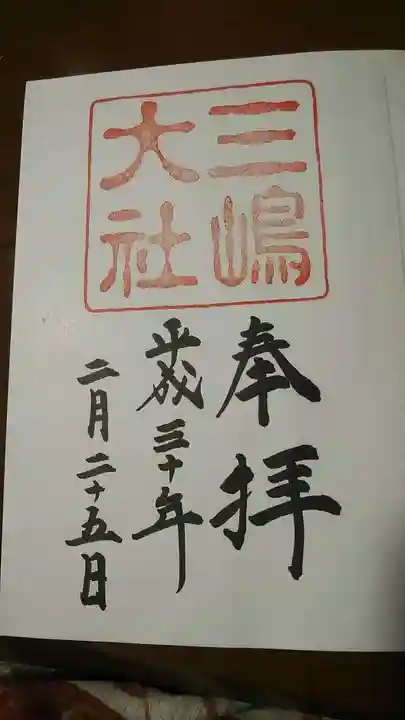 三嶋
大社
奉拝
平成三十年
二月二十五日